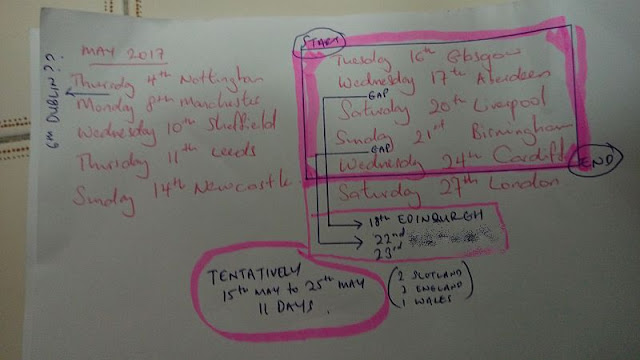 MAY 2017
Thursday 4th Nottingham
Monday 8th Manchester
Wednesday 10th Sheffield
Thursday 11th Leeds
Sunday 14th Newcastle
6th DUBLIN??
START
Tuesday 16th Glasgow
Wednesday 17th Aberdeen
GAP
Saturday 20th Liverpool
Sunday 21st Birmingham
GAP
Wednesday 24th Cardiff
END
Saturday 27th London
18th EDINBURGH
22nd
23rd
TENTATIVELY
15th MAY to 25th MAY
11 DAYS.
(2 SCOTLAND
3 ENGLAND
1 WALES)